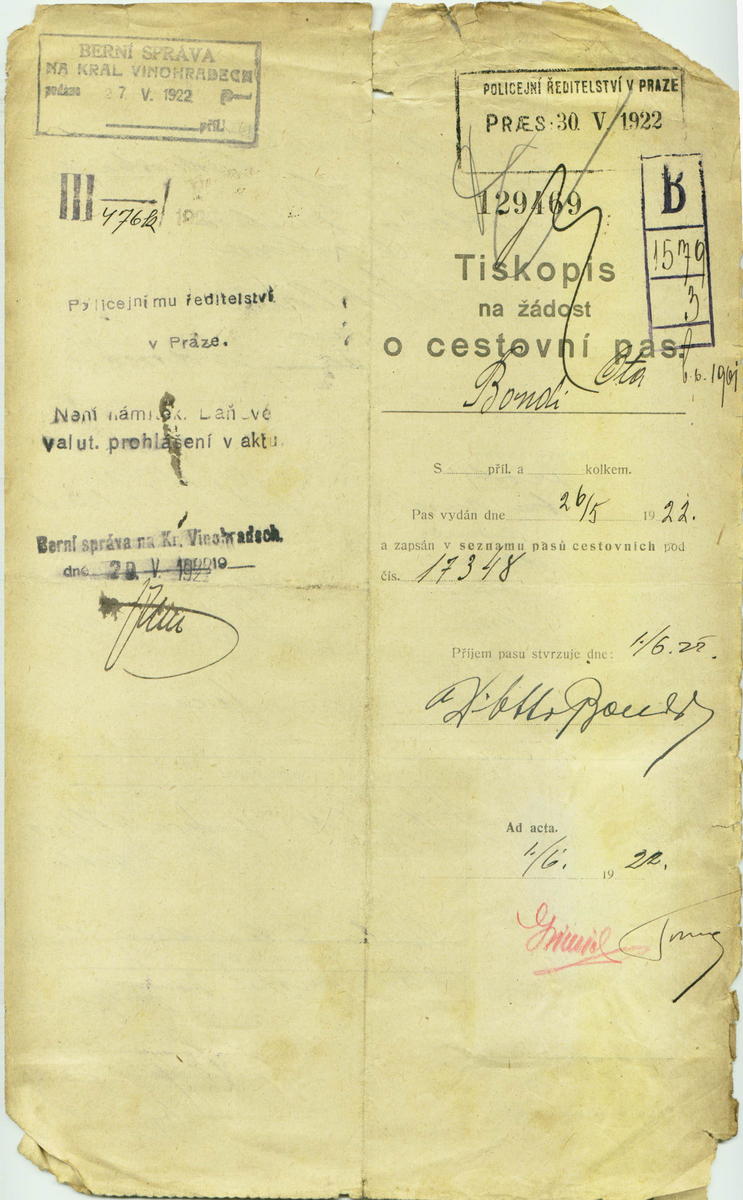 BERNÍ SPRÁVA
NA KRÁL VINOHRADECH
podáno 27 V. 1922
příl.
III
Policejnímu ředitelství
v Praze.
Není námitek. Daňové
valut. prohlášení v aktu
Berní správa na Kr. Vinohradech.
dne 29 V. 1922
POLICEJNÍ ŘEDITELSTVÍ V PRAZE
PRÆS: 30 V. 1922
129469
B
1579
3
Tiskopis
na žádost
o cestovní pas.
Bondi Ota
S příl. a kolkem.
Pas vydán dne 26/5 1922.
a zapsán v seznamu pasů cestovních pod
čís. 17348
Příjem pasu stvrzuje dne: 1/6. 22.
Otto Bondi
Ad acta.
1/6. 1922.